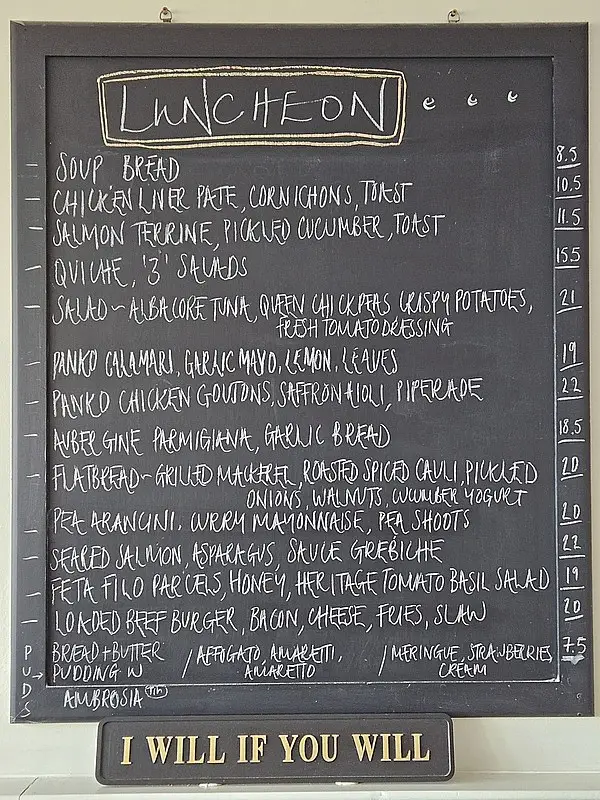 LUNCHEON
SOUP BREAD 8.5
CHICKEN LIVER PATE, CORNICHONS, TOAST 10.5
SALMON TERRINE, PICKLED CUCUMBER, TOAST 11.5
QUICHE, '3' SALADS 15.5
SALAD ~ ALBACORE TUNA, QUEEN CHICKPEAS CRISPY POTATOES, 21
FRESH TOMATO DRESSING
PANKO CALAMARI, GARLIC MAYO, LEMON, LEAVES 19
PANKO CHICKEN GOUJONS, SAFFRON AIOLI, PIPERADE 22
AUBERGINE PARMIGIANA, GARLIC BREAD 18.5
FLATBREAD ~ GRILLED MACKEREL, ROASTED SPICED CAULI, PICKLED 20
ONIONS, WALNUTS, CUCUMBER YOGURT
PEA ARANCINI, CURRY MAYONNAISE, PEA SHOOTS 20
SEARED SALMON, ASPARAGUS, SAUCE GREBICHE 22
FETA FILO PARCELS, HONEY, HERITAGE TOMATO BASIL SALAD 19
LOADED BEEF BURGER, BACON, CHEESE, FRIES, SLAW 20
PUDS → BREAD + BUTTER / AFFOGATO, AMARETTI, / MERINGUE, STRAWBERRIES 7.5
PUDDING W AMARETTO CREAM
AMBROSIA
I WILL IF YOU WILL